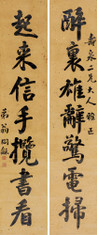 壽泉二兄大人雅正
醉裏雄辭驚電掃
起來信手攬書看
弟翁同龢